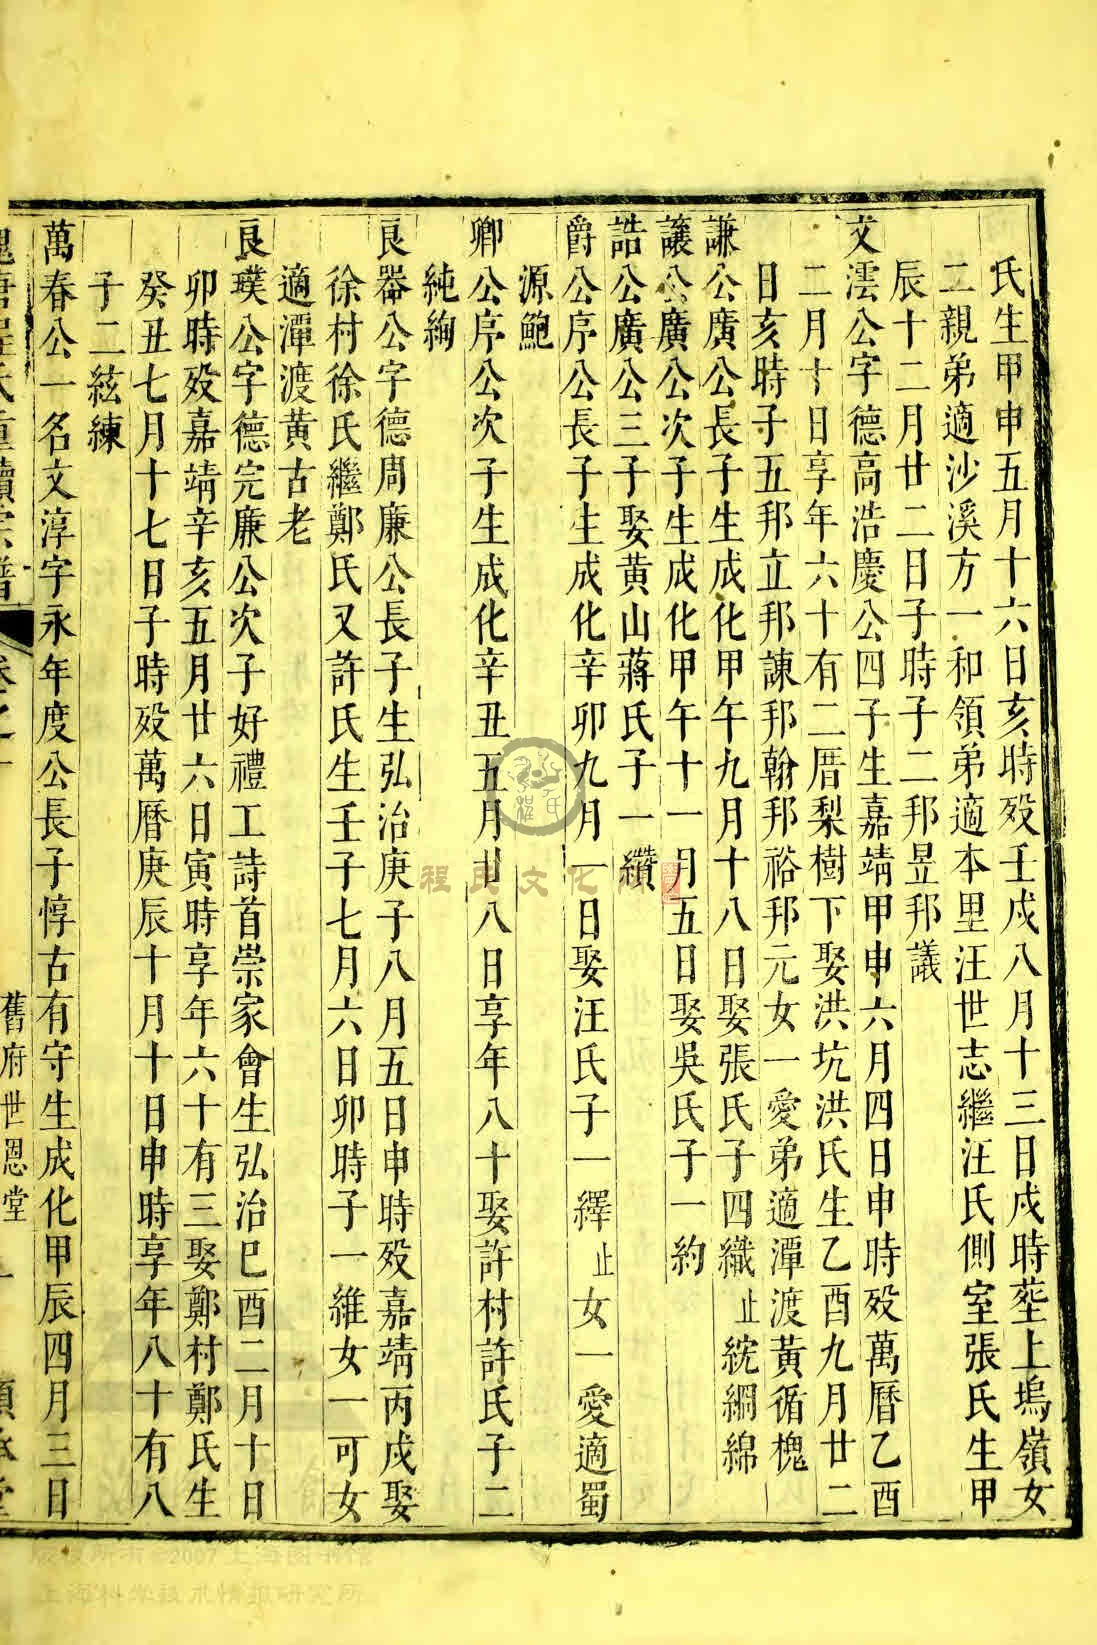 氏生甲申五月十六日亥時歿壬戌八月十三日戌時塟上塢嶺女
二親弟適沙溪方一和領弟適本里汪世志繼汪氏側室張氏生甲
辰十二月廿二日子時子二邦昱邦議
文澐公字德高浩慶公四子生嘉靖甲申六月四日申時歿萬曆乙酉
二月十日享年六十有二厝梨樹下娶洪坑洪氏生乙酉九月廿二
日亥時子五邦立邦諫邦翰邦裕邦元女一愛弟適潭渡黃循槐
謙公廣公長子生成化甲午九月十八日娶張氏子四織止綂綱綿
讓公廣公次子生成化甲午十一月五日娶吳氏子一約
誥公廣公三子娶黃山蔣氏子一纘
爵公序公長子生成化辛卯九月一日娶汪氏子一繹止女一愛適蜀
源鮑
卿公序公次子生成化辛丑五月廿八日享年八十娶許村許氏子二
純絢
良器公字德周廉公長子生弘治庚子八月五日申時歿嘉靖丙戌娶
徐村徐氏繼鄭氏又許氏生壬子七月六日卯時子一維女一可女
適潭渡黃古老
良璞公字德完廉公次子好禮工詩首崇家會生弘治巳酉二月十日
卯時歿嘉靖辛亥五月廿六日寅時享年六十有三娶鄭村鄭氏生
癸丑七月十七日子時歿萬曆庚辰十月十日申時享年八十有八
子二絃練
萬春公一名文淳字永年度公長子惇古有守生成化甲辰四月三日
舊府世恩堂
程氏文化
版權所有©2007上海圖書館
上海科学技术情报研究所